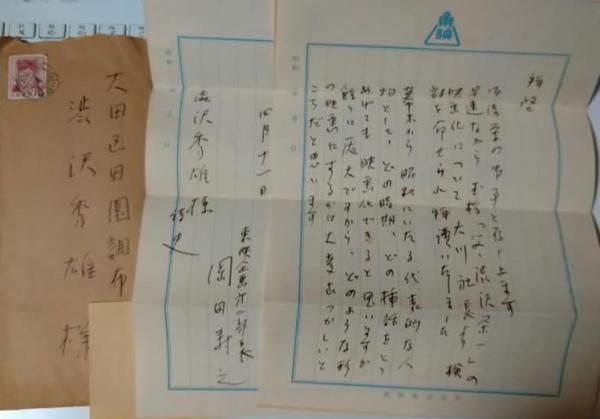 東映
拝啓
御清栄の御事と存じ上ます
早速ながら玉稿「父、渋沢栄一」の
映画化について大川社長より検
討を命ぜられ拝読いたしました
幕末から昭和にいたる代表的な人
物として、どの時期、どの挿話をとり
あげても映画化できると思いますが
餘りに厖大ですから、どのような形
の映画にするかは大変むつかしいと
ころだと思います
四月十一日
東映企画
部長
岡田寿之
渋沢秀雄様
侍史
大田区田園調布
渋沢秀雄様